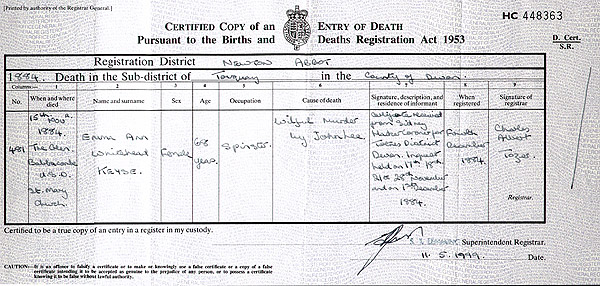 [Printed by authority of the Registrar General.]
HC 448363
CERTIFIED COPY of an ENTRY OF DEATH
Pursuant to the Births and Deaths Registration Act 1953
D. Cert.
S.R.
Registration District NEWTON ABBOT
1884. Death in the Sub-district of Torquay in the County of Devon.
Columns:— 1 2 3 4 5 6 7 8 9
No. When and where died Name and surname Sex Age Occupation Cause of death Signature, description, and residence of informant When registered Signature of registrar
481
15th Nov.
1884.
The Glen
Babbacombe
U.S.D.
St. Mary
Church.
Emma Ann
Whitehead
KEYSE.
Female
68
years.
Spinster
Wilful Murder
by John Lee.
Certificate received
from Sidney
Hacker Coroner for
Totnes District
Devon. Inquest
held on 17th 18th
21st 28th November
and on 1st December
1884.
Fourth
December
1884.
Charles
Albert
Tozer.
Registrar.
Certified to be a true copy of an entry in a register in my custody.
Superintendent Registrar.
11. 5. 1999. Date.
CAUTION:—It is an offence to falsify a certificate or to make or knowingly use a false certificate or a copy of a false
certificate intending it to be accepted as genuine to the prejudice of any person, or to possess a certificate
knowing it to be false without lawful authority.